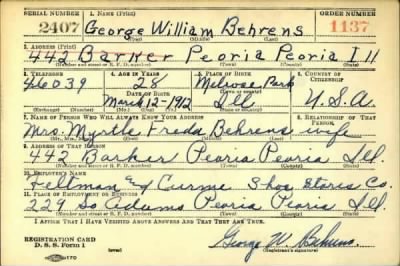 SERIAL NUMBER 1. NAME (Print) ORDER NUMBER
2407 George William Behrens 1137
2. ADDRESS (Print)
442 Barker Peoria Peoria Ill
(Number and street or R. F. D. number) (Town) (County) (State)
3. TELEPHONE 4. AGE IN YEARS 5. PLACE OF BIRTH 6. COUNTRY OF CITIZENSHIP
46039 28 Melrose Park
DATE OF BIRTH
March-12-1912 Ill U.S.A.
(Exchange) (Number) (Mo.) (Day) (Yr.) (State or country)
7. NAME OF PERSON WHO WILL ALWAYS KNOW YOUR ADDRESS 8. RELATIONSHIP OF THAT PERSON
Mrs. Myrtle Freda Behrens wife
(Mr., Mrs., Miss) (First) (Middle) (Last)
9. ADDRESS OF THAT PERSON
442 Barker Peoria Peoria Ill.
(Number and street or R. F. D. number) (Town) (County) (State)
10. EMPLOYER'S NAME
Curme Shoe Stores Co.
11. PLACE OF EMPLOYMENT OR BUSINESS
229 So Adams Peoria Peoria Ill
(Number and street or R. F. D. number) (Town) (County) (State)
I AFFIRM THAT I HAVE VERIFIED ABOVE ANSWERS AND THAT THEY ARE TRUE.
REGISTRATION CARD
D. S. S. Form 1 George W. Behrens
(over) (Registrant's signature)